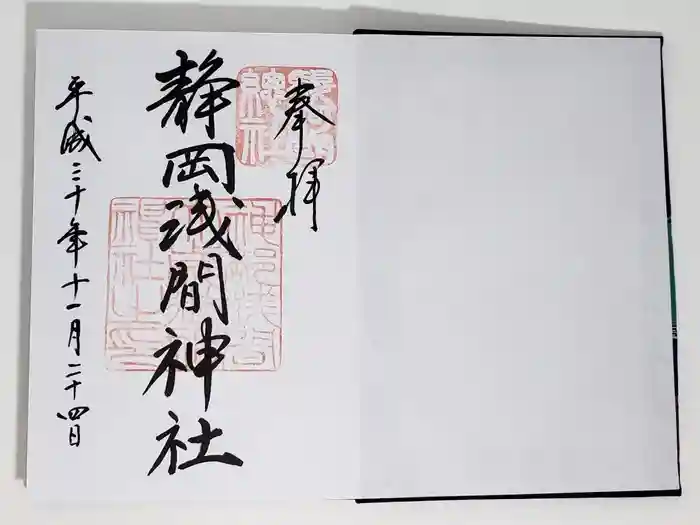 奉拝
静岡浅間神社
平成三十年十一月二十四日